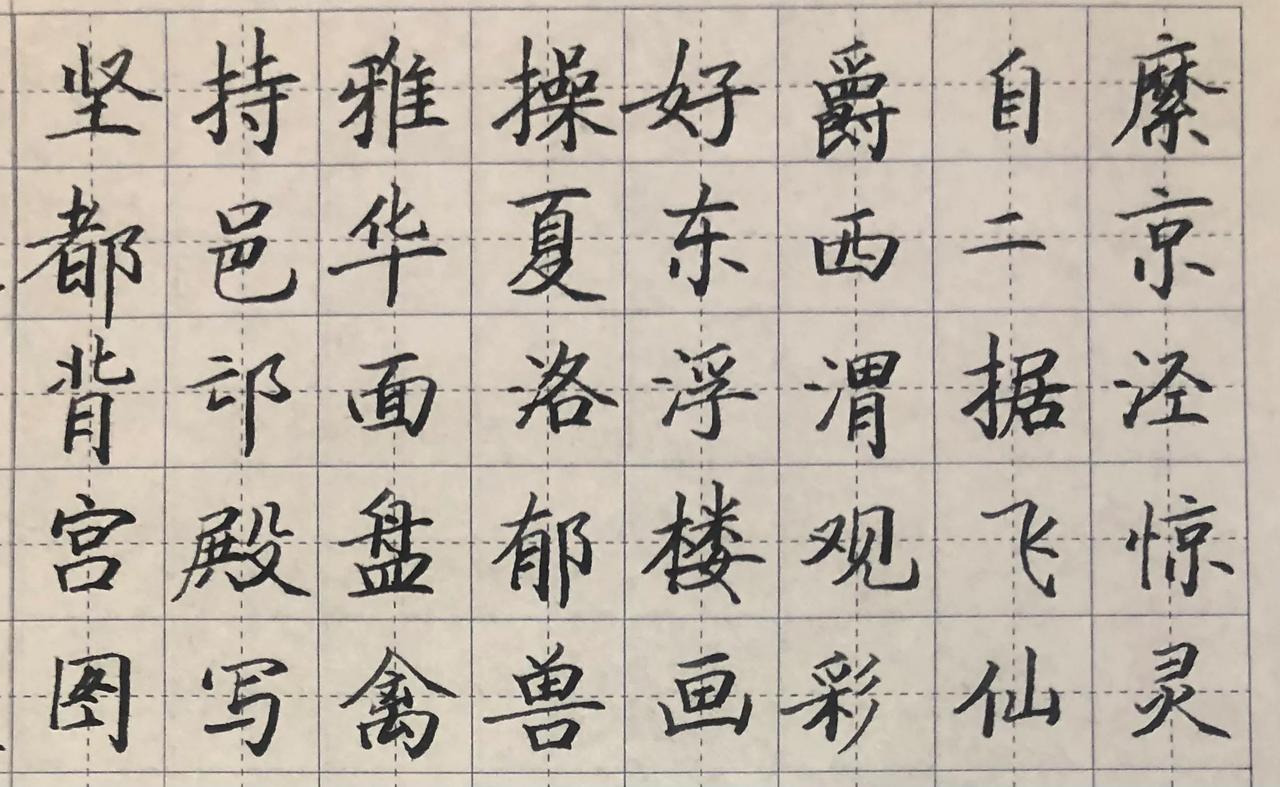 坚持雅操好爵自縻
都邑华夏东西二京
背邙面洛浮渭据泾
宫殿盘郁楼观飞惊
图写禽兽画彩仙灵